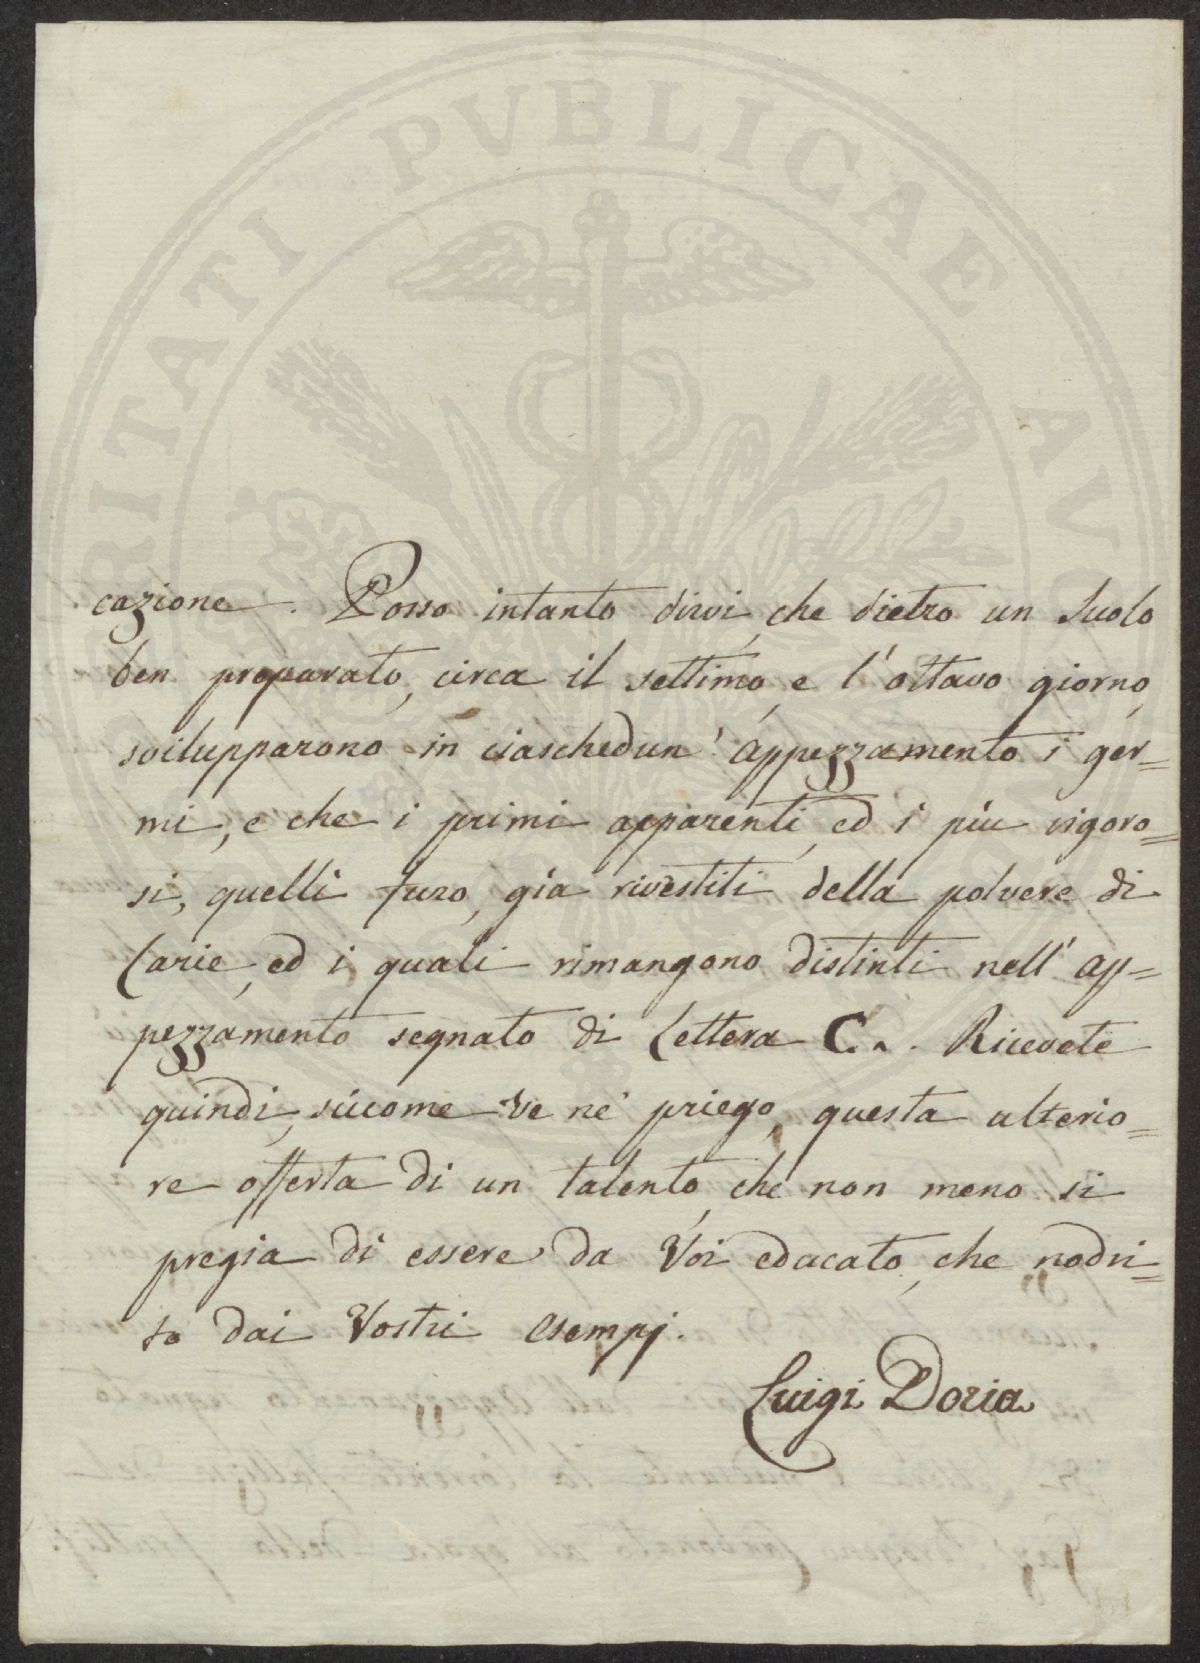 PROSPERITATI PVBLICAE AVGENDAE
cazione. Posso intanto dirvi, che dietro un suolo
ben preparato, circa il settimo, e l'ottavo giorno,
svilupparono in ciaschedun' appezzamento i ger=
mi, e che i primi apparenti, ed i più vigoro=
si, quelli furo, già rivestiti della polvere di
Carie, ed i quali rimangono distinti nell' ap=
pezzamento segnato di Lettera C. Ricevete
quindi, siccome ve ne' priego, questa ulterio=
re offerta di un talento, che non meno si
pregia di essere da Voi educato, che nodri=
to dai Vostri esempj.
Luigi Doria